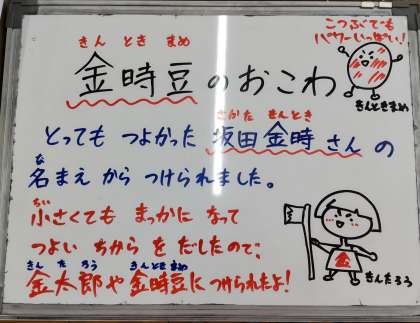 こつぶでも
パワーいっぱい!
きんときまめ
きん とき まめ
金時豆のおこわ
さかた きんとき
とっても つよかった 坂田金時さんの
な
名まえ から つけられました。
ちい
小さくても まっかに なって
つよい ちから を だしたので、
きん た ろう きんとき まめ
金太郎や金時豆につけられたよ!
金
きんたろう